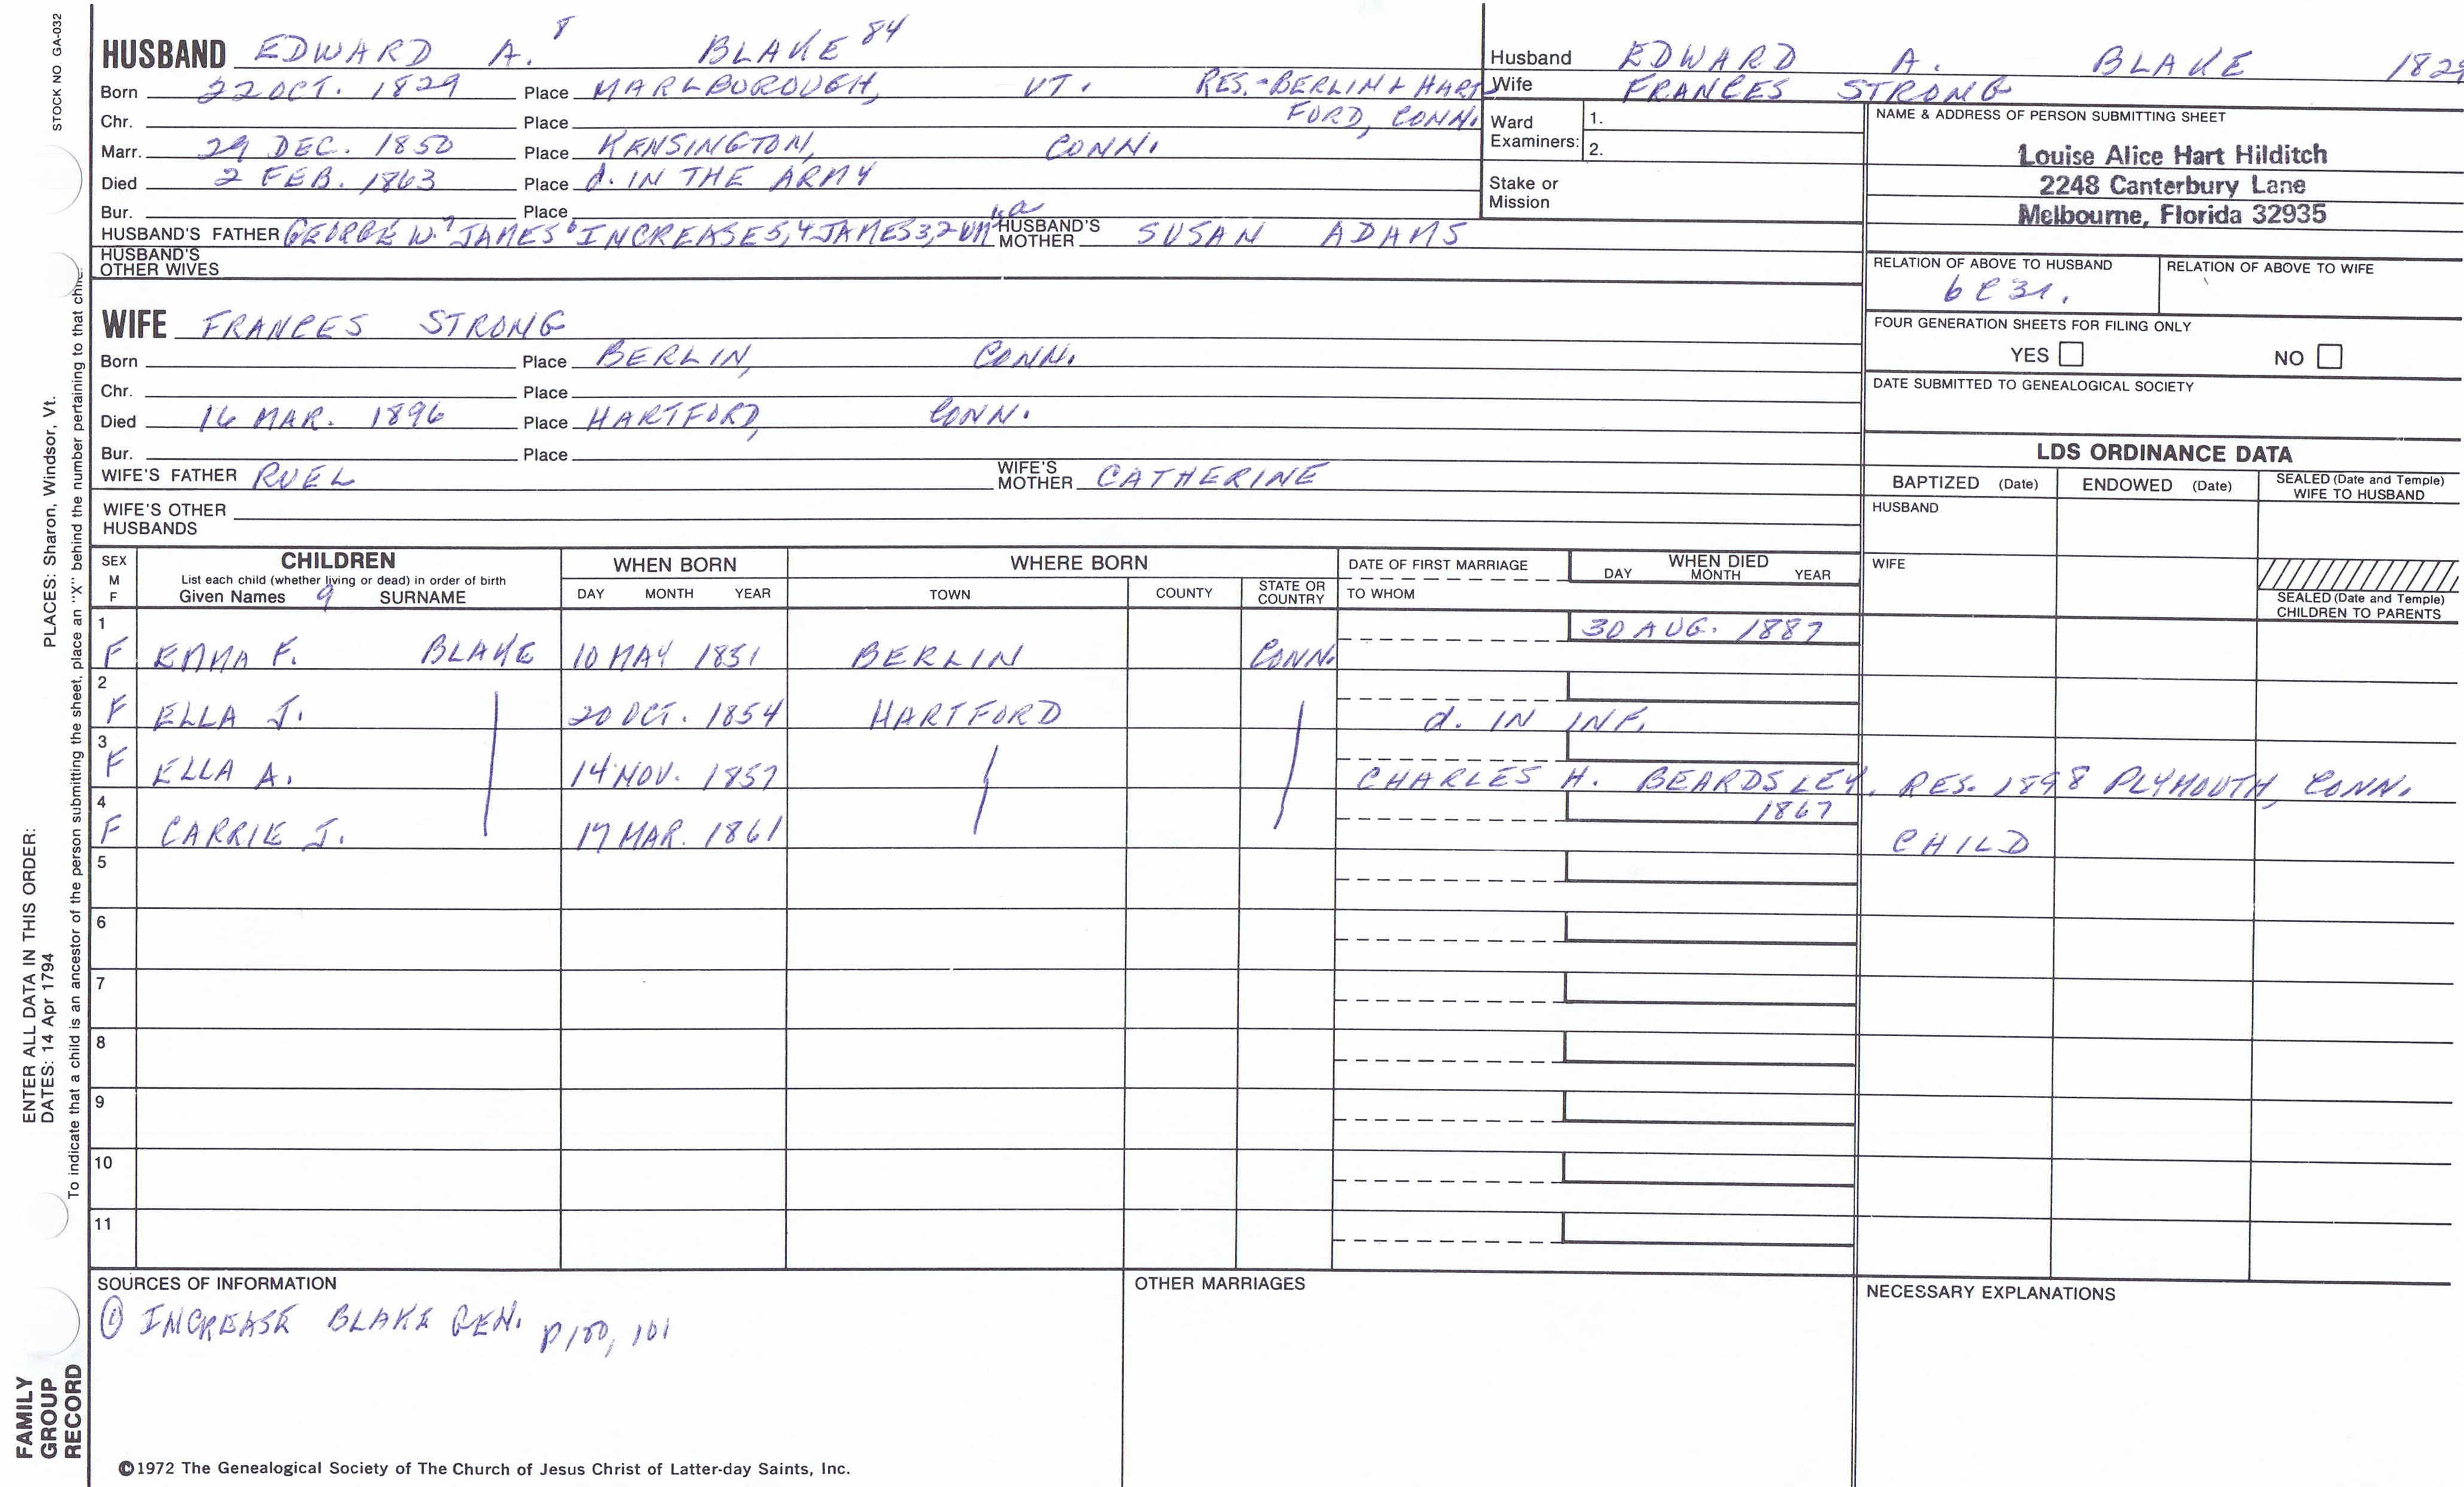 STOCK NO GA-032
HUSBAND EDWARD A. 8 BLAKE 84
Born 22 OCT. 1829 Place MARLBOROUGH, VT. RES.-BERLIN & HART
Chr. Place FORD, CONN.
Marr. 29 DEC. 1850 Place KENSINGTON, CONN.
Died 2 FEB. 1863 Place d. IN THE ARMY
Bur. Place
HUSBAND'S FATHER GEORGE W.7 JAMES6 INCREASE5,4 JAMES3,2 WM HUSBAND'S MOTHER SUSAN ADAMS
HUSBAND'S OTHER WIVES
WIFE FRANCES STRONG
Born Place BERLIN, CONN.
Chr. Place
Died 16 MAR. 1896 Place HARTFORD, CONN.
Bur. Place
WIFE'S FATHER RUEL WIFE'S MOTHER CATHERINE
WIFE'S OTHER HUSBANDS
Husband EDWARD A. BLAKE 1829
Wife FRANCES STRONG
Ward Examiners: 1.
2.
Stake or Mission
NAME & ADDRESS OF PERSON SUBMITTING SHEET
Louise Alice Hart Hilditch
2248 Canterbury Lane
Melbourne, Florida 32935
RELATION OF ABOVE TO HUSBAND RELATION OF ABOVE TO WIFE
6C3r.
FOUR GENERATION SHEETS FOR FILING ONLY
YES NO
DATE SUBMITTED TO GENEALOGICAL SOCIETY
LDS ORDINANCE DATA
BAPTIZED (Date) ENDOWED (Date) SEALED (Date and Temple) WIFE TO HUSBAND
HUSBAND
WIFE
SEALED (Date and Temple) CHILDREN TO PARENTS
SEX M F CHILDREN WHEN BORN WHERE BORN DATE OF FIRST MARRIAGE WHEN DIED
List each child (whether living or dead) in order of birth
Given Names 9 SURNAME DAY MONTH YEAR TOWN COUNTY STATE OR COUNTRY TO WHOM DAY MONTH YEAR
1 F EMMA F. BLAKE 10 MAY 1851 BERLIN CONN. 30 AUG. 1887
2 F ELLA J. 20 OCT. 1854 HARTFORD d. IN INF.
3 F ELLA A. 14 NOV. 1857 CHARLES H. BEARDSLEY. RES. 1898 PLYMOUTH, CONN.
4 F CARRIE J. 17 MAR. 1861 1867 CHILD
5
6
7
8
9
10
11
SOURCES OF INFORMATION
① INCREASE BLAKE GEN. p100, 101
OTHER MARRIAGES
NECESSARY EXPLANATIONS
©1972 The Genealogical Society of The Church of Jesus Christ of Latter-day Saints, Inc.
FAMILY GROUP RECORD
ENTER ALL DATA IN THIS ORDER:
DATES: 14 Apr 1794 PLACES: Sharon, Windsor, Vt.
To indicate that a child is an ancestor of the person submitting the sheet, place an "X" behind the number pertaining to that child.